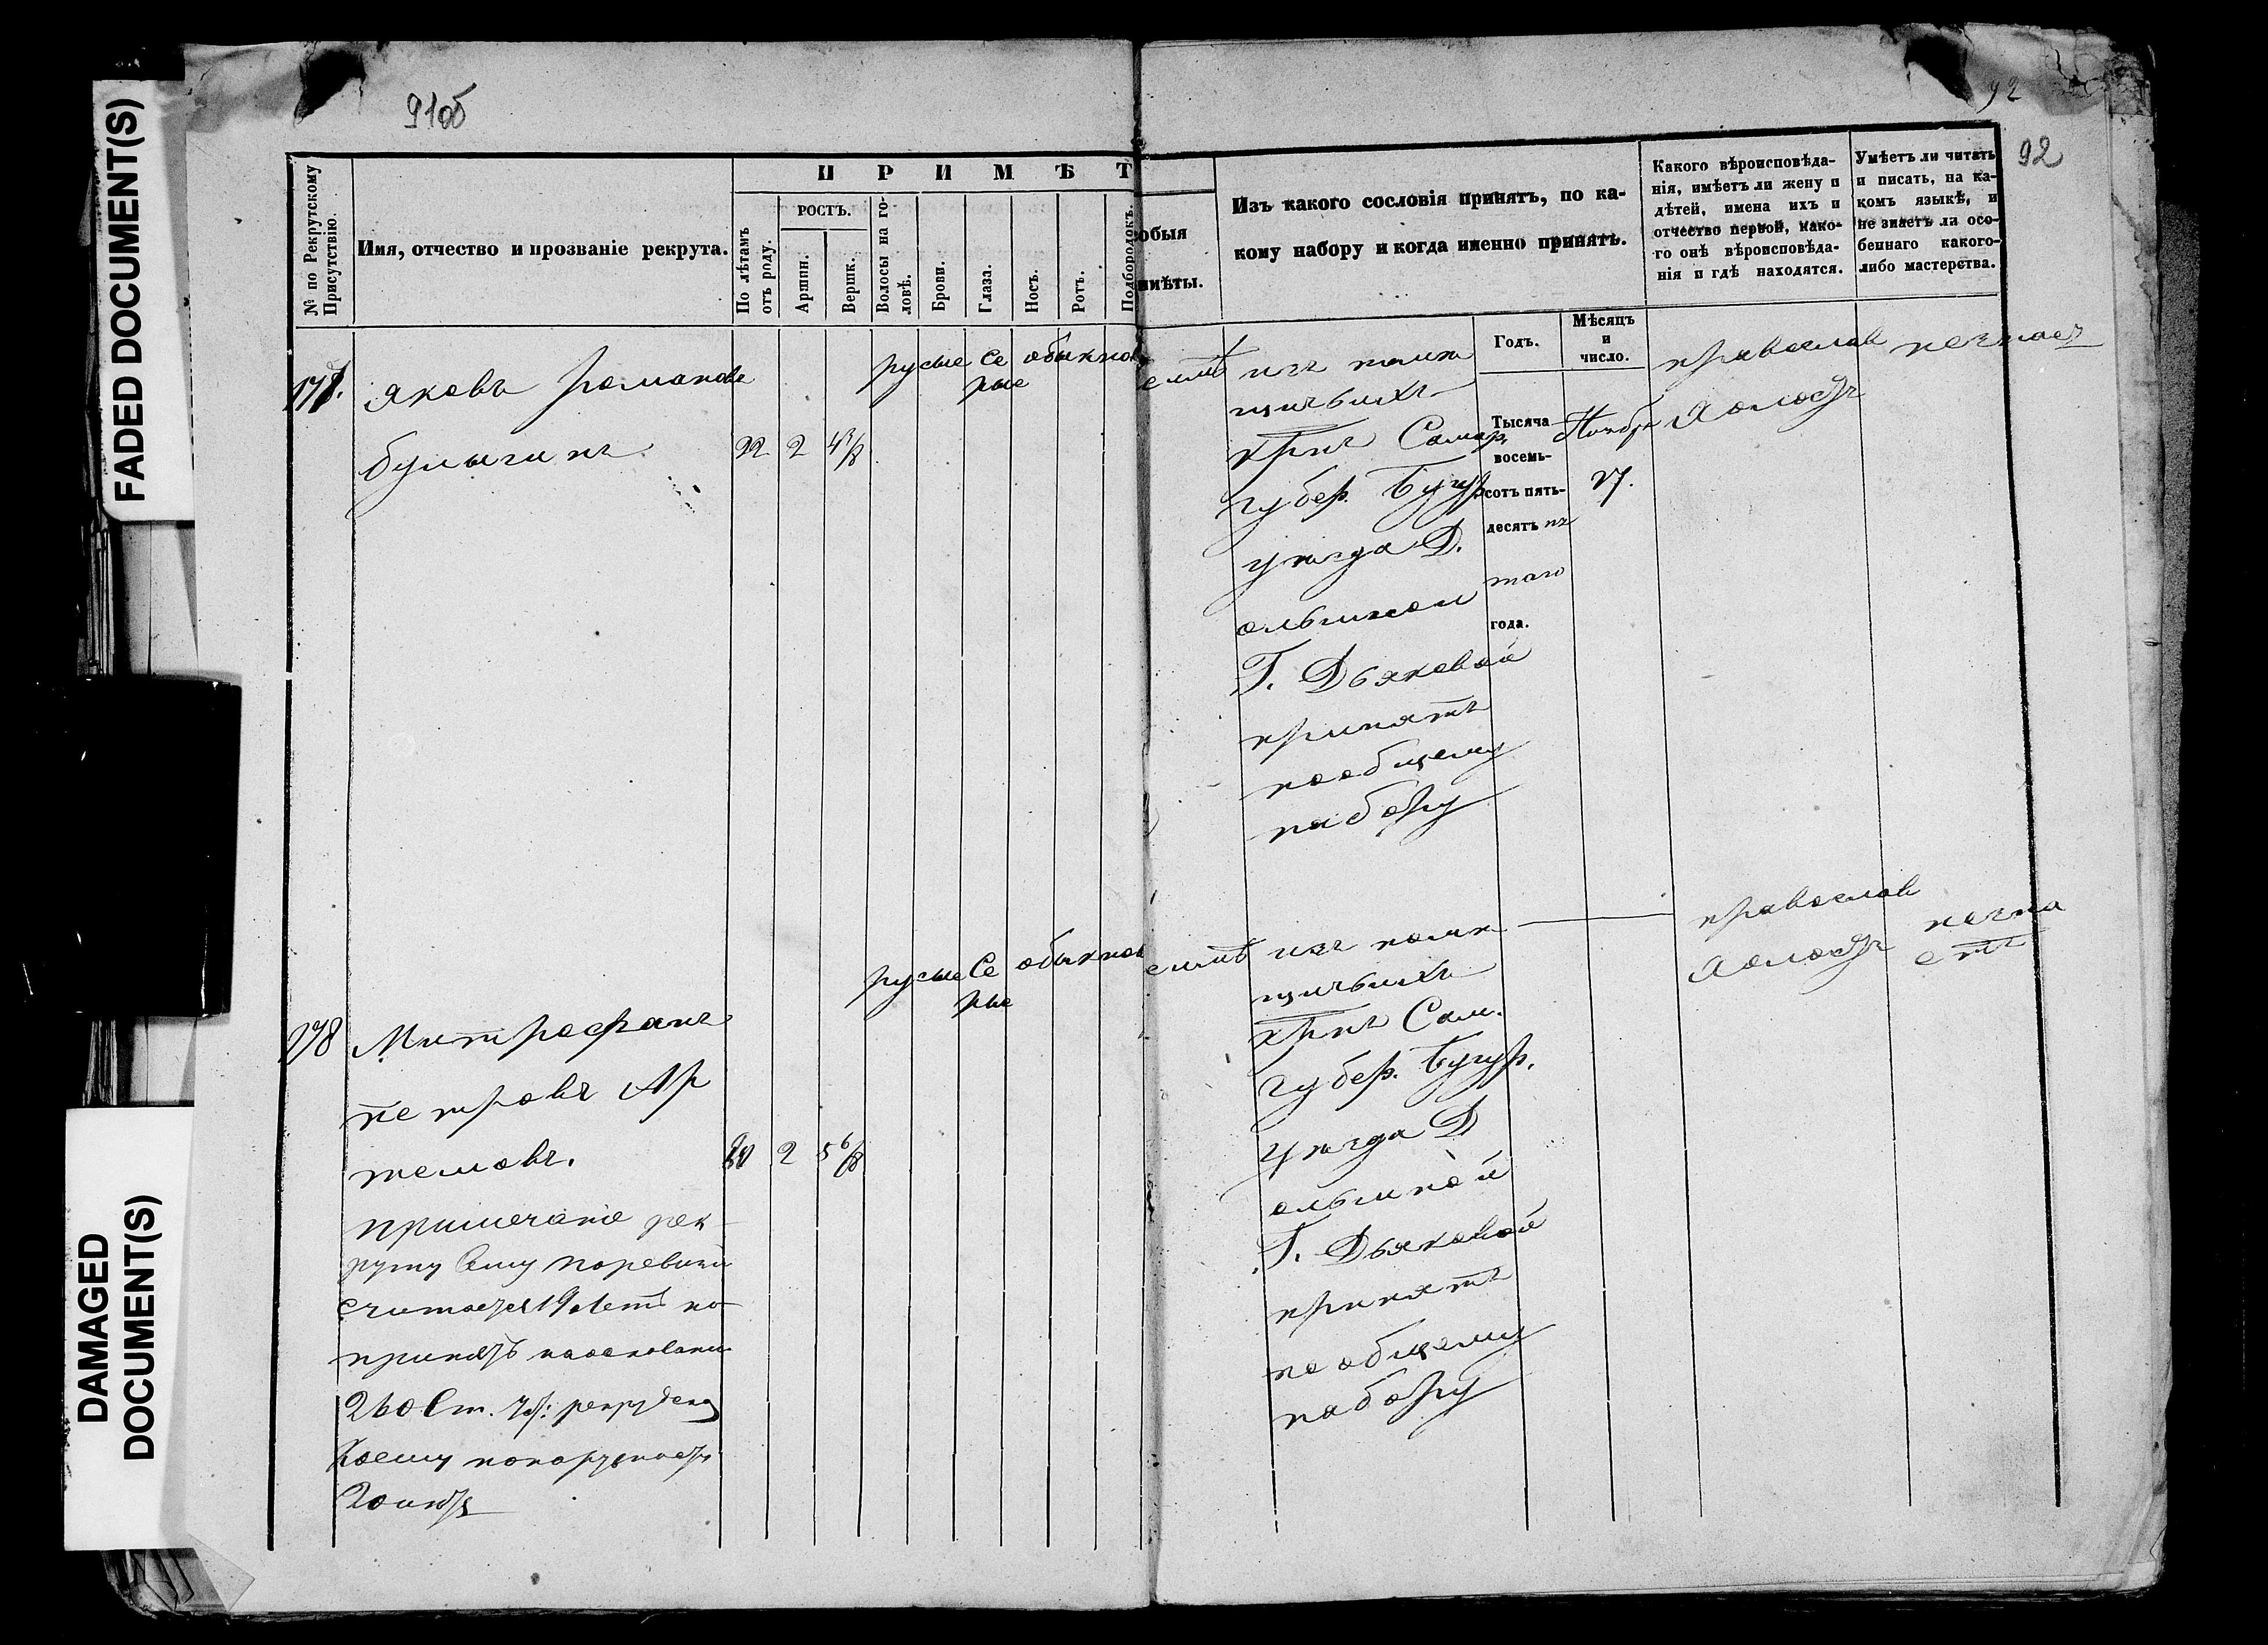 FADED DOCUMENT(S)
DAMAGED
DOCUMENT(S)
91об
92
92
№ по Рекрутскому Присутствію.
Имя, отчество и прозваніе рекрута.
П Р И М Ѣ Т
По лѣтамъ отъ роду.
РОСТЪ.
Аршин.
Вершк.
Волосы на головѣ.
Брови.
Глаза.
Носъ.
Ротъ.
Подбородокъ.
обыя
имѣты.
Изъ какого сословія принятъ, по ка-
кому набору и когда именно принятъ.
Какого вѣроисповѣда-
нія, имѣетъ ли жену и
дѣтей, имена ихъ и
отчество первой, како-
го онѣ вѣроисповѣда-
нія и гдѣ находятся.
Умѣетъ ли читать
и писать, на ка-
комъ языкѣ, и
не знаетъ ли осо-
беннаго какого-
либо мастерства.
Годъ.
Мѣсяцъ
и
число.
177. яковъ романовъ
булыгинъ 22 2 4
русые Се обыкнов
рые
изъ помѣ
щичьихъ
крнъ Самар
губер. Бугур
уѣзда Д.
Г. Дьяковой
принятъ
пообщему
набору
Тысяча
восемь-
сотъ пять-
десятъ пя
таго
года.
Ноябр
27.
православ
холостъ
незнает
178 Митрофанъ
петровъ Ар
темовъ. 20 2 5 6/8
русые Се обыкнов
рые
примечание рек
руту Сему поревизи
считается 19 летъ но
принятъ наосновани
260 Ст.
Коему понаружности
20 летъ
изъ помѣ
щичьихъ
крнъ Сам.
губер. Бугур.
уѣзда Д
Г. Дьяковой
принятъ
по общему
набору
православ
холостъ
незна
етъ